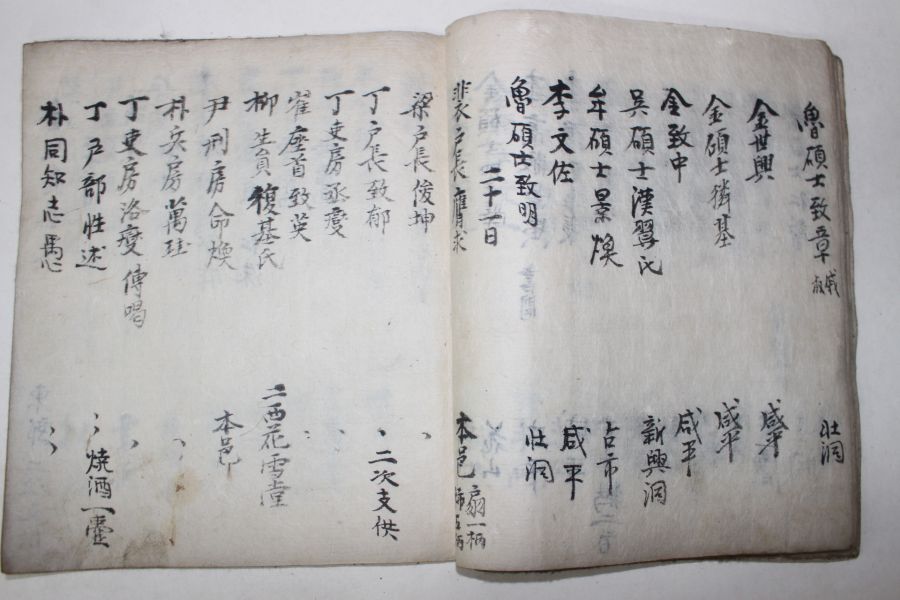 魯碩士致章 牡洞
金世興 咸平
金碩士 基 咸平
金致中 咸平
吳碩士漢翼氏 新興洞
牟碩士景煥 占市
李文佐 咸平
魯碩士致明 二十一日 牡洞
裵戶長 求 本邑 扇一柄
梁戶長俊坤 〃
丁戶長致郁 〃 二次支供
丁吏房丞燮 〃
崔座首致英 〃
柳生員馥基氏 二西花雪堂
尹刑房命煥 本邑
朴兵房萬珪 〃
丁吏房洛燮 傳喝 〃
丁戶部性述 〃 燒酒一壺
朴同知志禹 〃